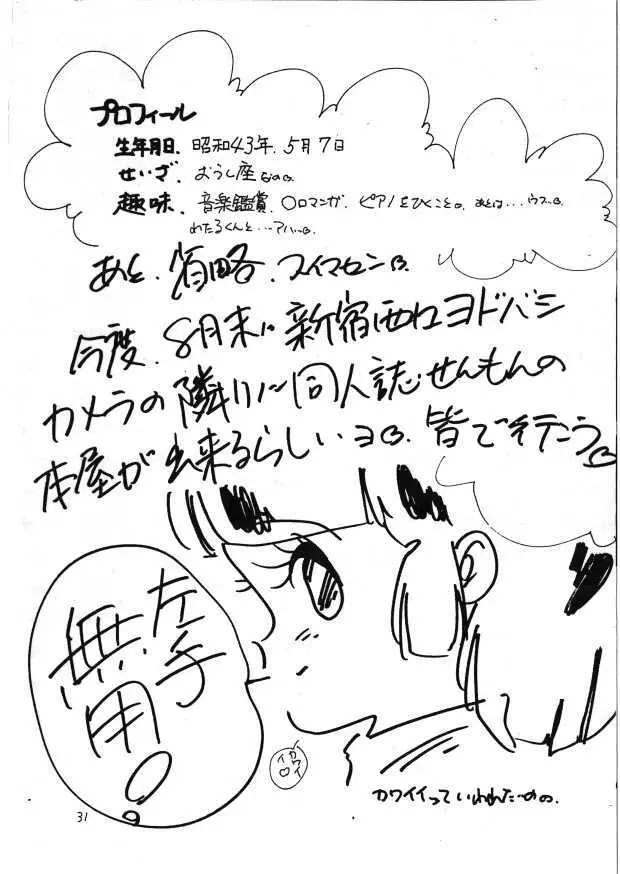 プロフィール
生年月日、昭和43年、5月7日
せいざ、おうし座なのℬ
趣味、音楽鑑賞、〇ロマンガ、ピアノをひくこと。あとは…ウフッ
わたるくんと…アハッ
あと、省略、スイマセン
今度、8月末に新宿西口ヨドバシ
カメラの隣りに同人誌せんもんの
本屋が出来るらしいヨ 皆で行こう
左手
無用
カワイイ
カワイイっていわれたいの。
31